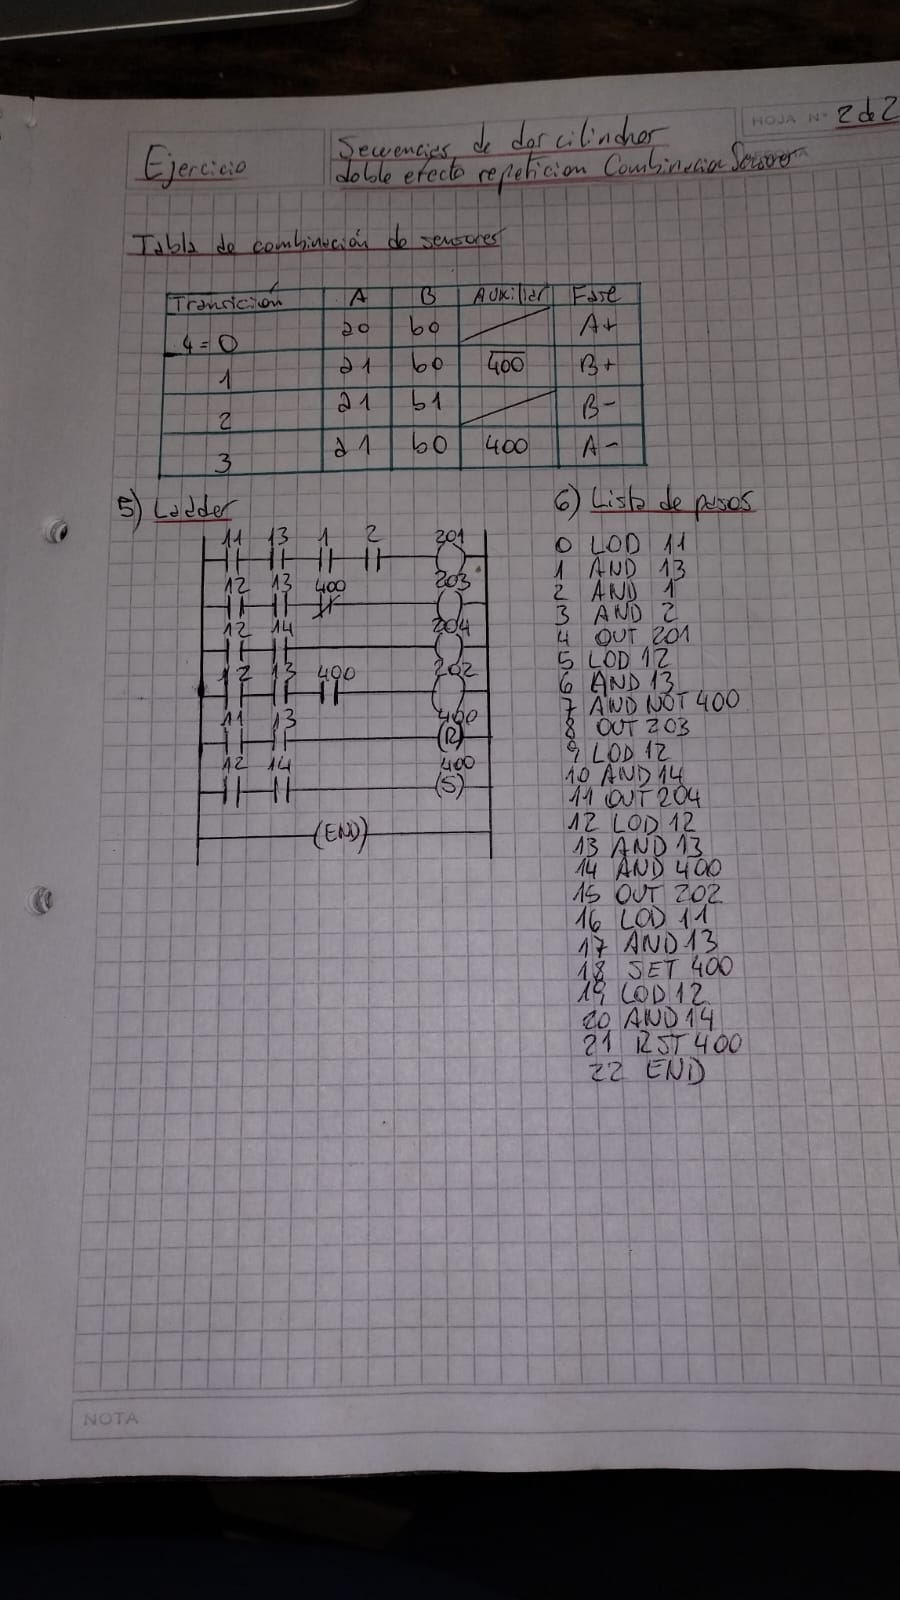 HOJA Nº 2 de 2
Ejercicio
Secuencias de dos cilindros
doble efecto repeticion Combinacion Sensores
Tabla de combinación de sensores
Transición A B Auxiliar Fase
4=0 a0 b0 A+
1 a1 b0 4̅0̅0̅ B+
2 a1 b1 B-
3 a1 b0 400 A-
5) Ladder
11 13 1 2 201
12 13 400 203
12 14 204
12 13 400 202
11 13 400
(R)
12 14 400
(S)
(END)
6) Lista de pasos
0 LOD 11
1 AND 13
2 AND 1
3 AND 2
4 OUT 201
5 LOD 12
6 AND 13
7 AND NOT 400
8 OUT 203
9 LOD 12
10 AND 14
11 OUT 204
12 LOD 12
13 AND 13
14 AND 400
15 OUT 202
16 LOD 11
17 AND 13
18 SET 400
19 LOD 12
20 AND 14
21 RST 400
22 END
NOTA